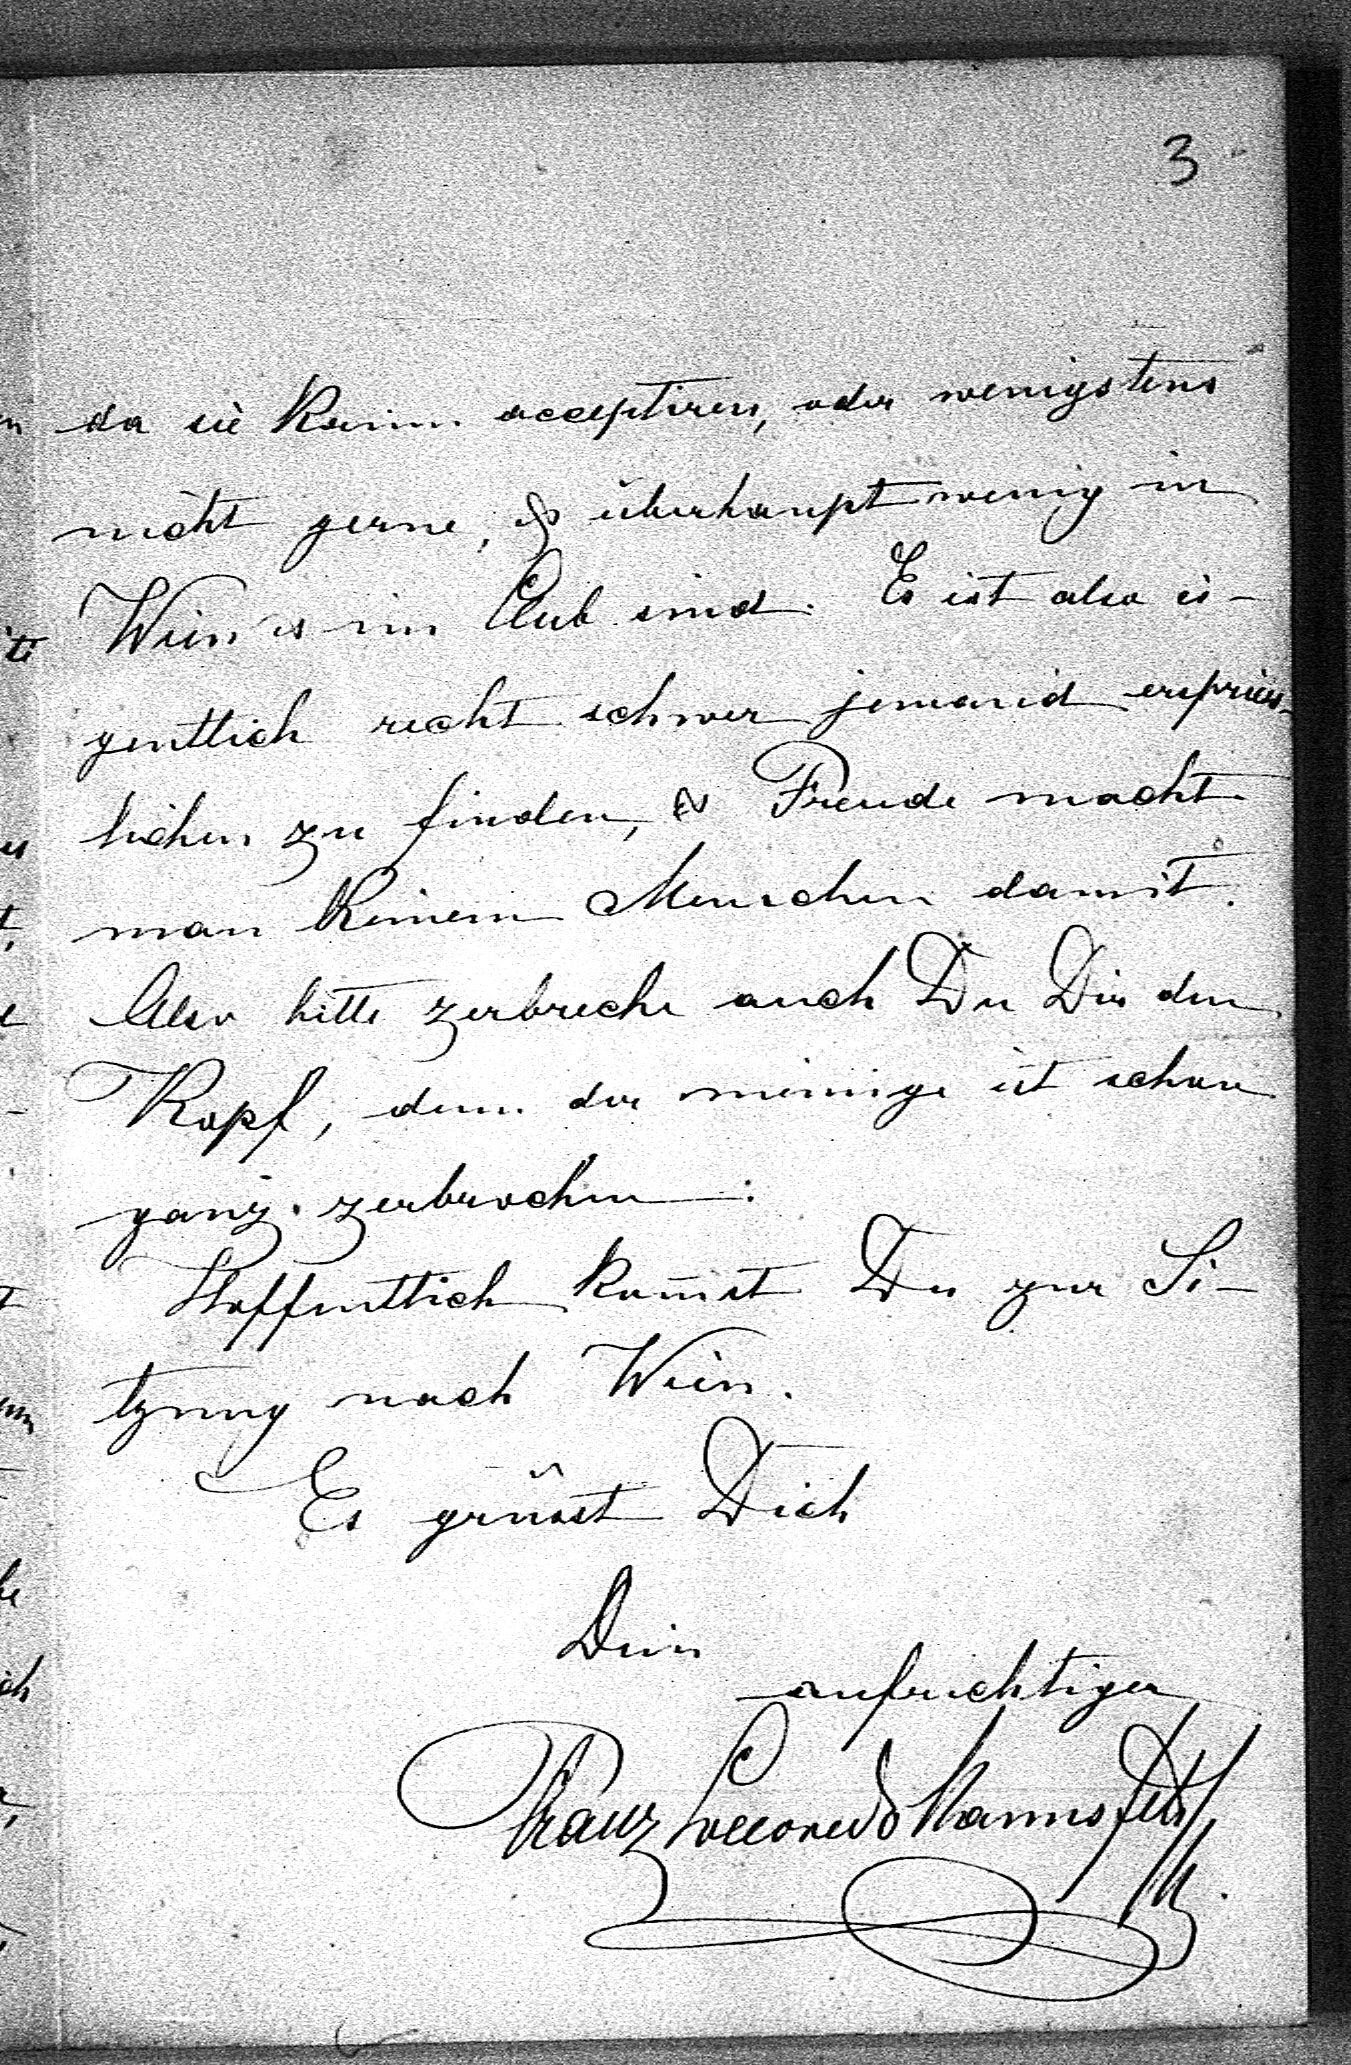 3
da sie kaum acceptiren, oder wenigstens
nicht gerne, & überhaupt wenig in
Wien & im Club sind. Es ist also ei-
gentlich recht schwer jemand erspries-
lichen zu finden, & Freude macht
man keinem Menschen damit.
Also bitte zerbreche auch Du Dir den
Kopf, denn der meinige ist schon
ganz zerbrochen.
Hoffentlich kom̄st Du zur Si-
tzung nach Wien.
Es grüsst Dich
Dein
aufrichtiger
Franz Colloredo Mannsfeld